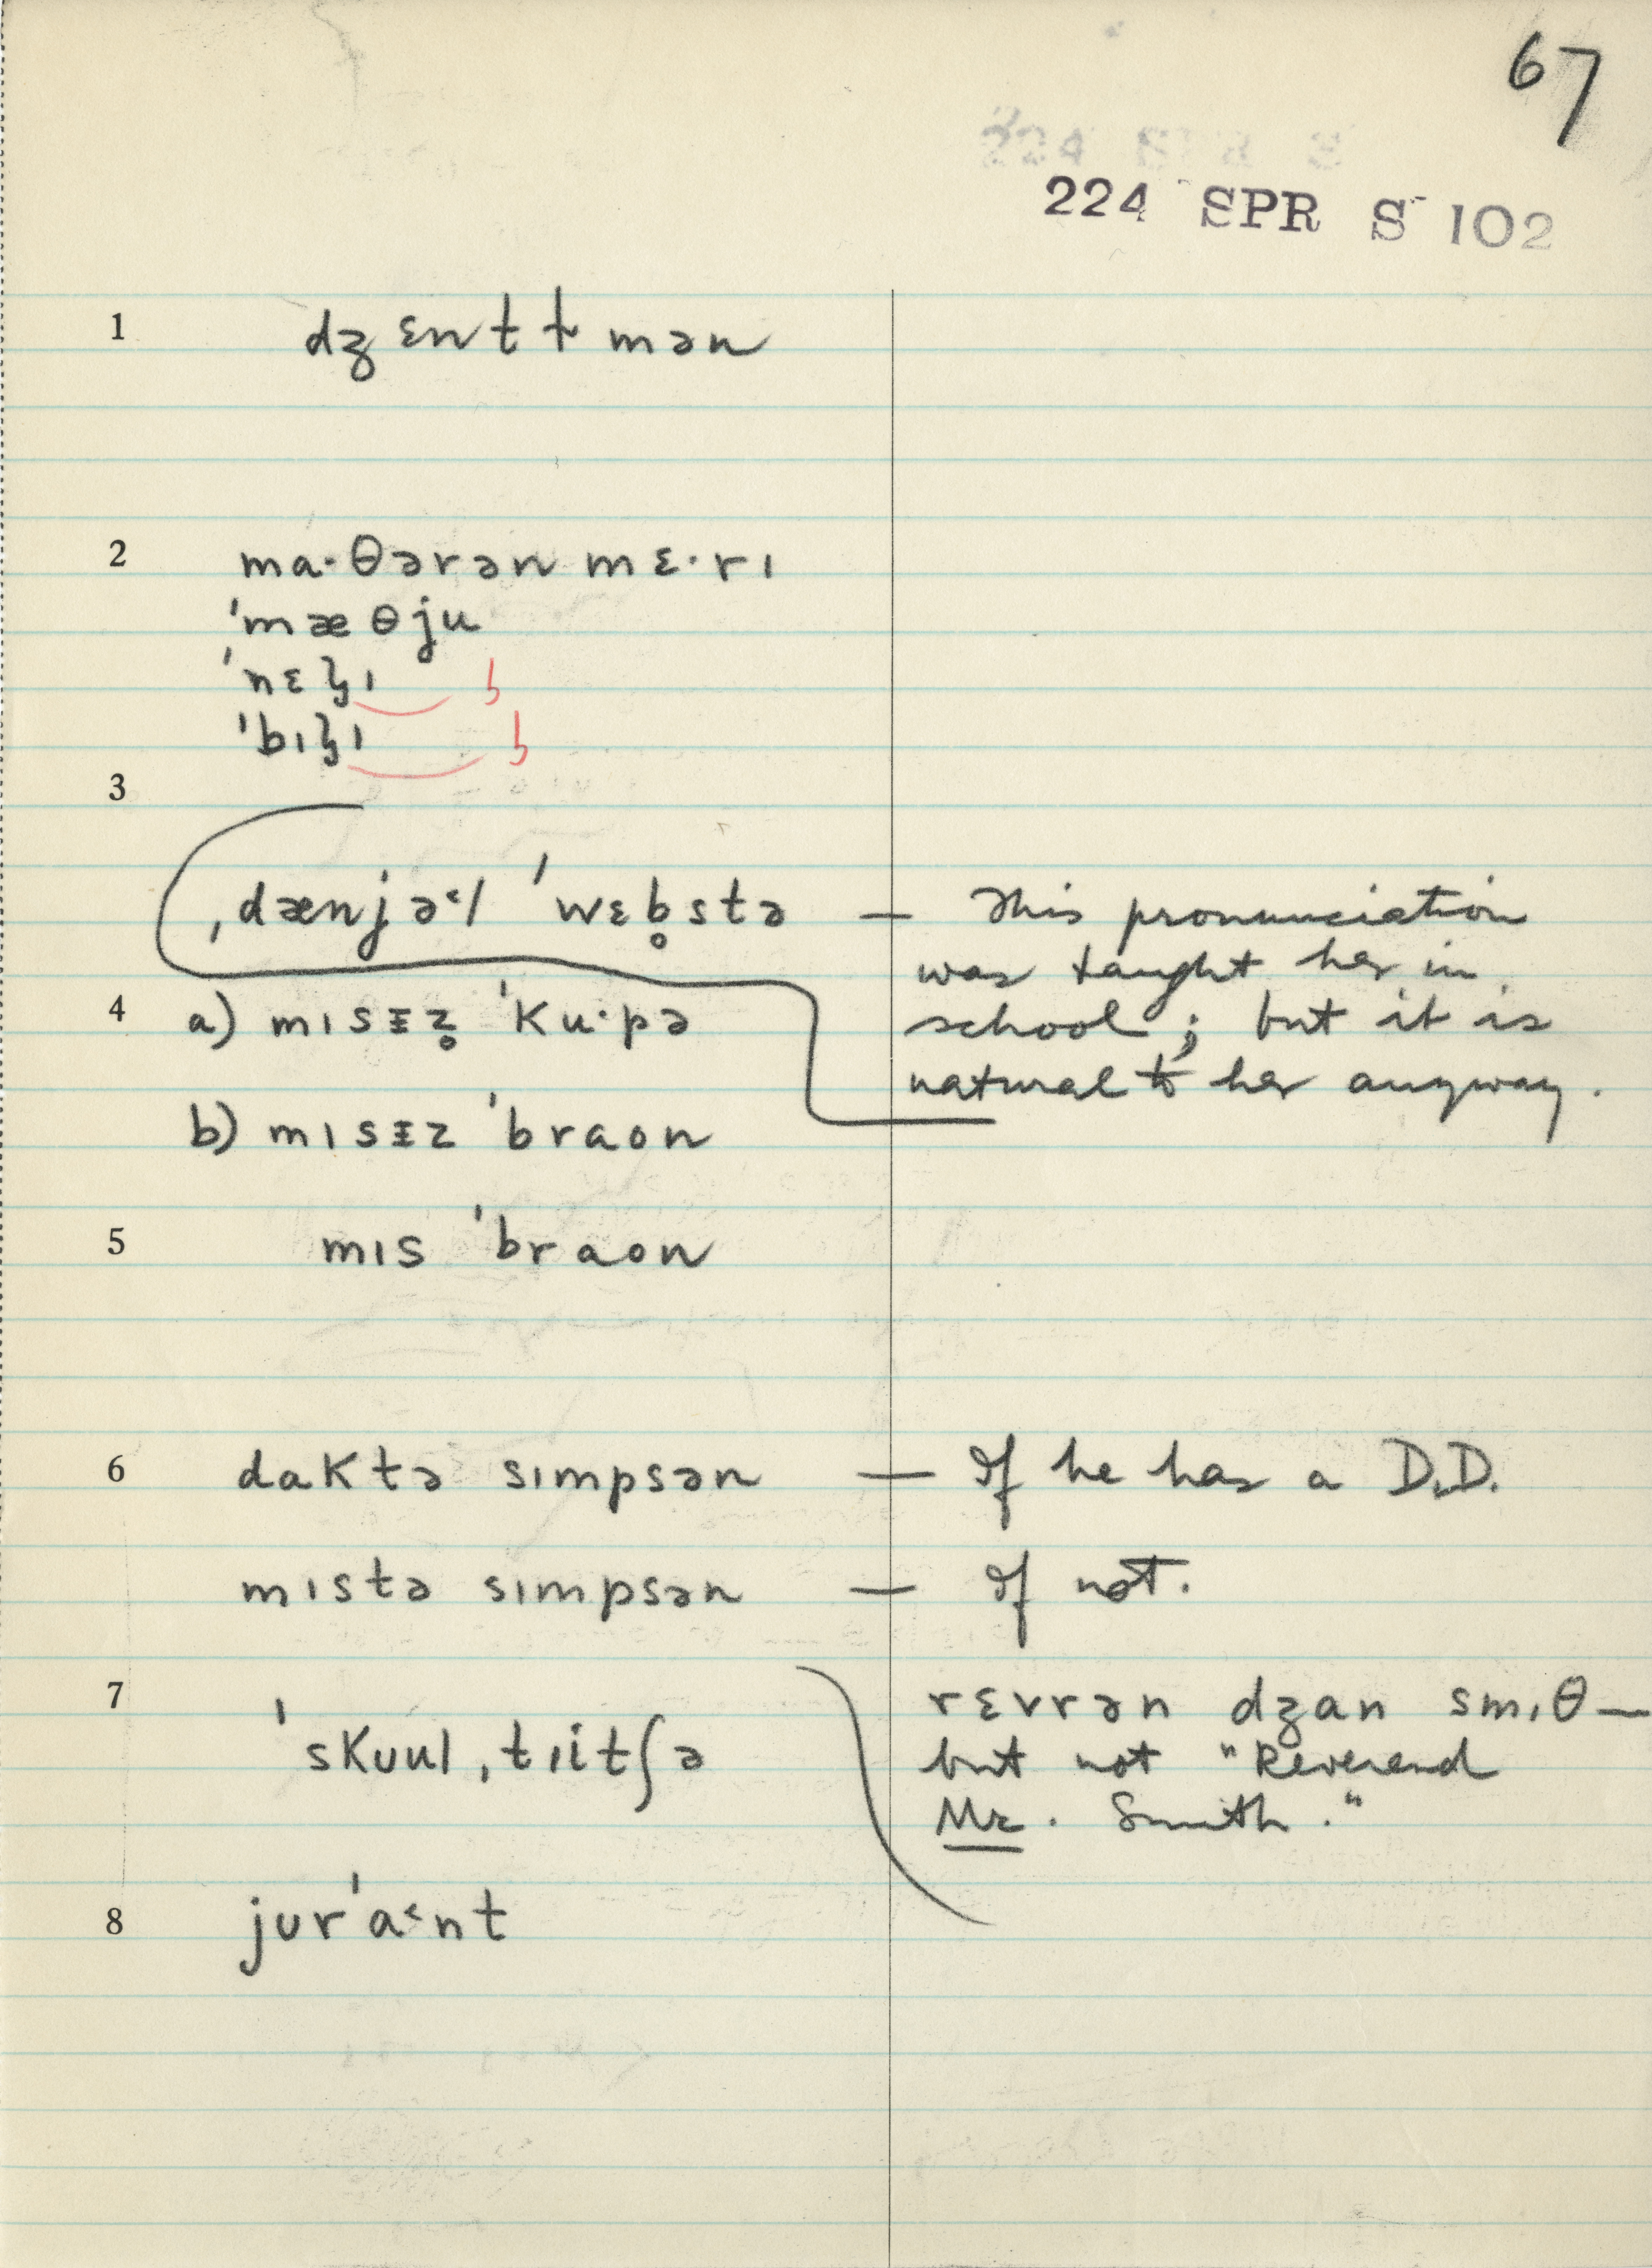 67
224 SPR S 102
1 dʒɛntɫmən
2 ma·θərən mɛ·rɪ
ˈmæθju
ˈnɛlɪ
ˈbɪlɪ
3
ˌdænjə˂l ˈwɛb̥stə — This pronunciation
was taught her in
4 a) mɪsɪz̥ ˈku·pə school; but it is
natural to her anyway.
b) mɪsɪz ˈbraon
5 mɪs ˈbraon
6 daktə sɪmpsən — If he has a D.D.
mɪstə sɪmpsən — If not.
7 rɛvrən dʒan smɪθ —
ˈskuul ˌtɪitʃə but not "Reverend
Mr. Smith."
8 jurˈa˂nt